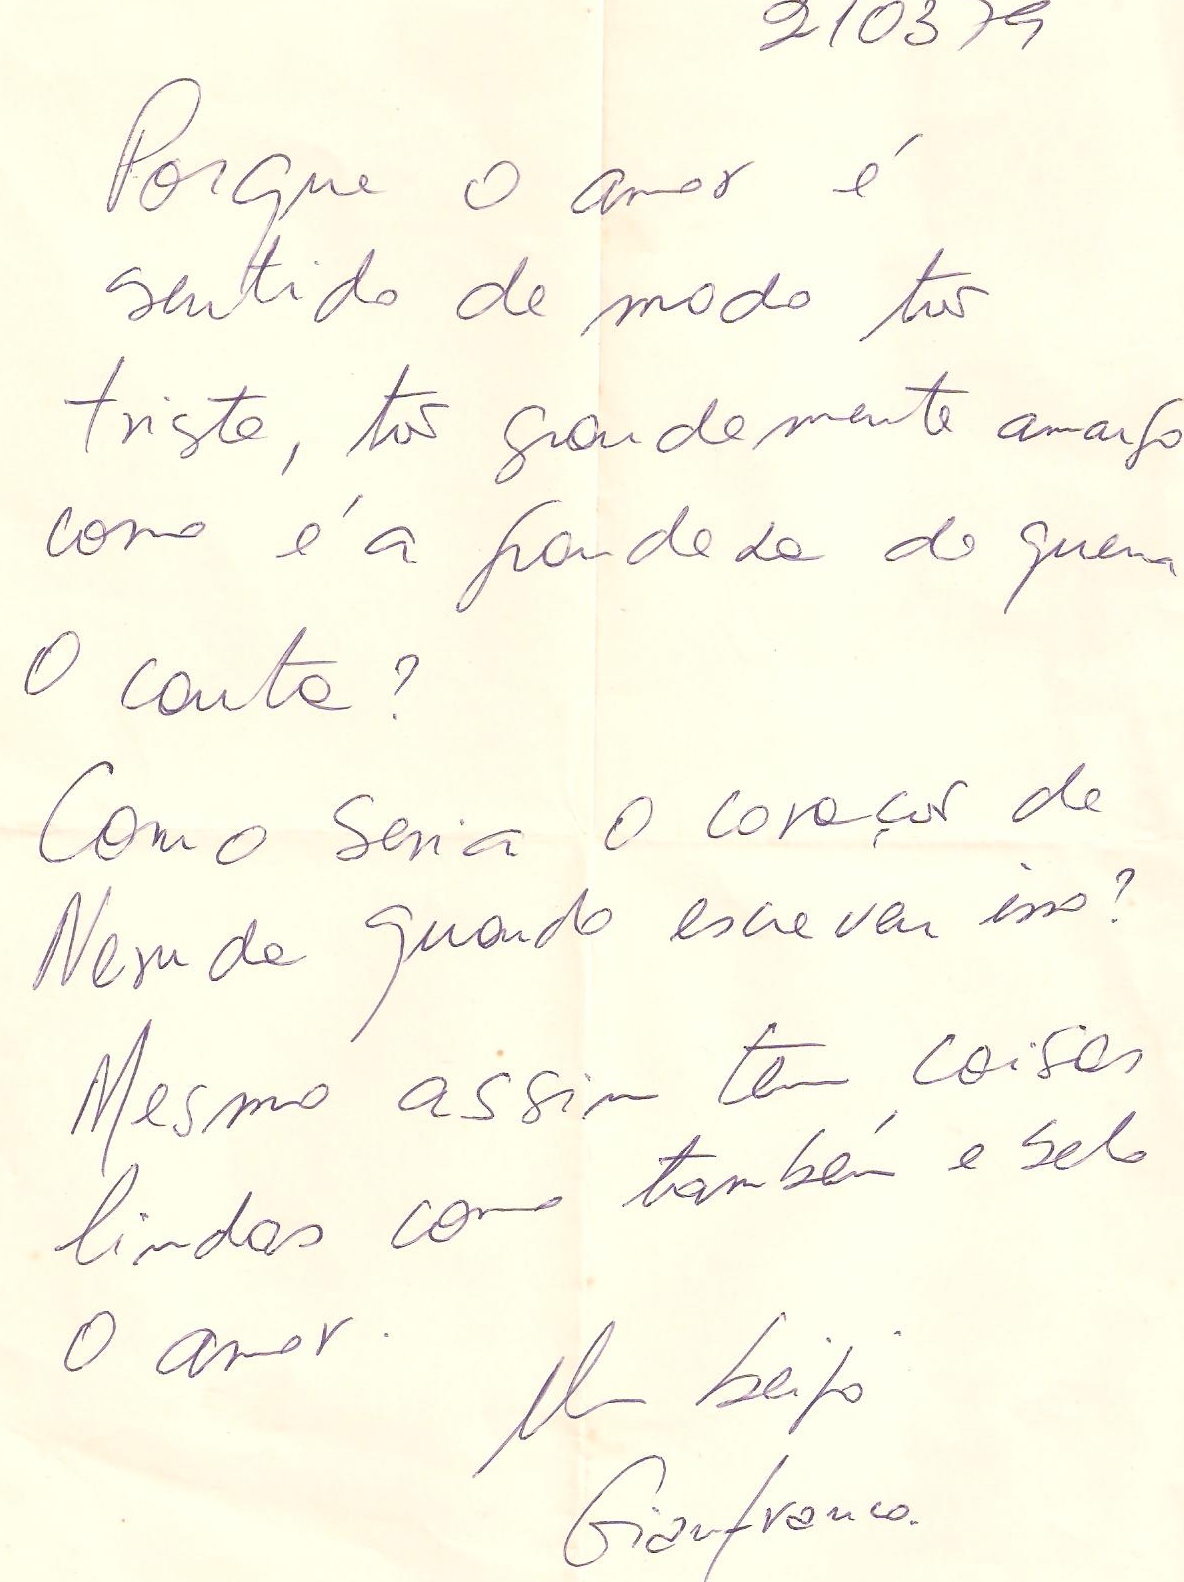 210379
Porque o amor é
sentido de modo tão
triste, tão grandemente amargo
como é a grandeza de quem
o canta?
Como seria o coração de
Neruda quando escreveu isso?
Mesmo assim tem coisas
lindas como também é belo
o amor.
Um beijo
Gianfranco.